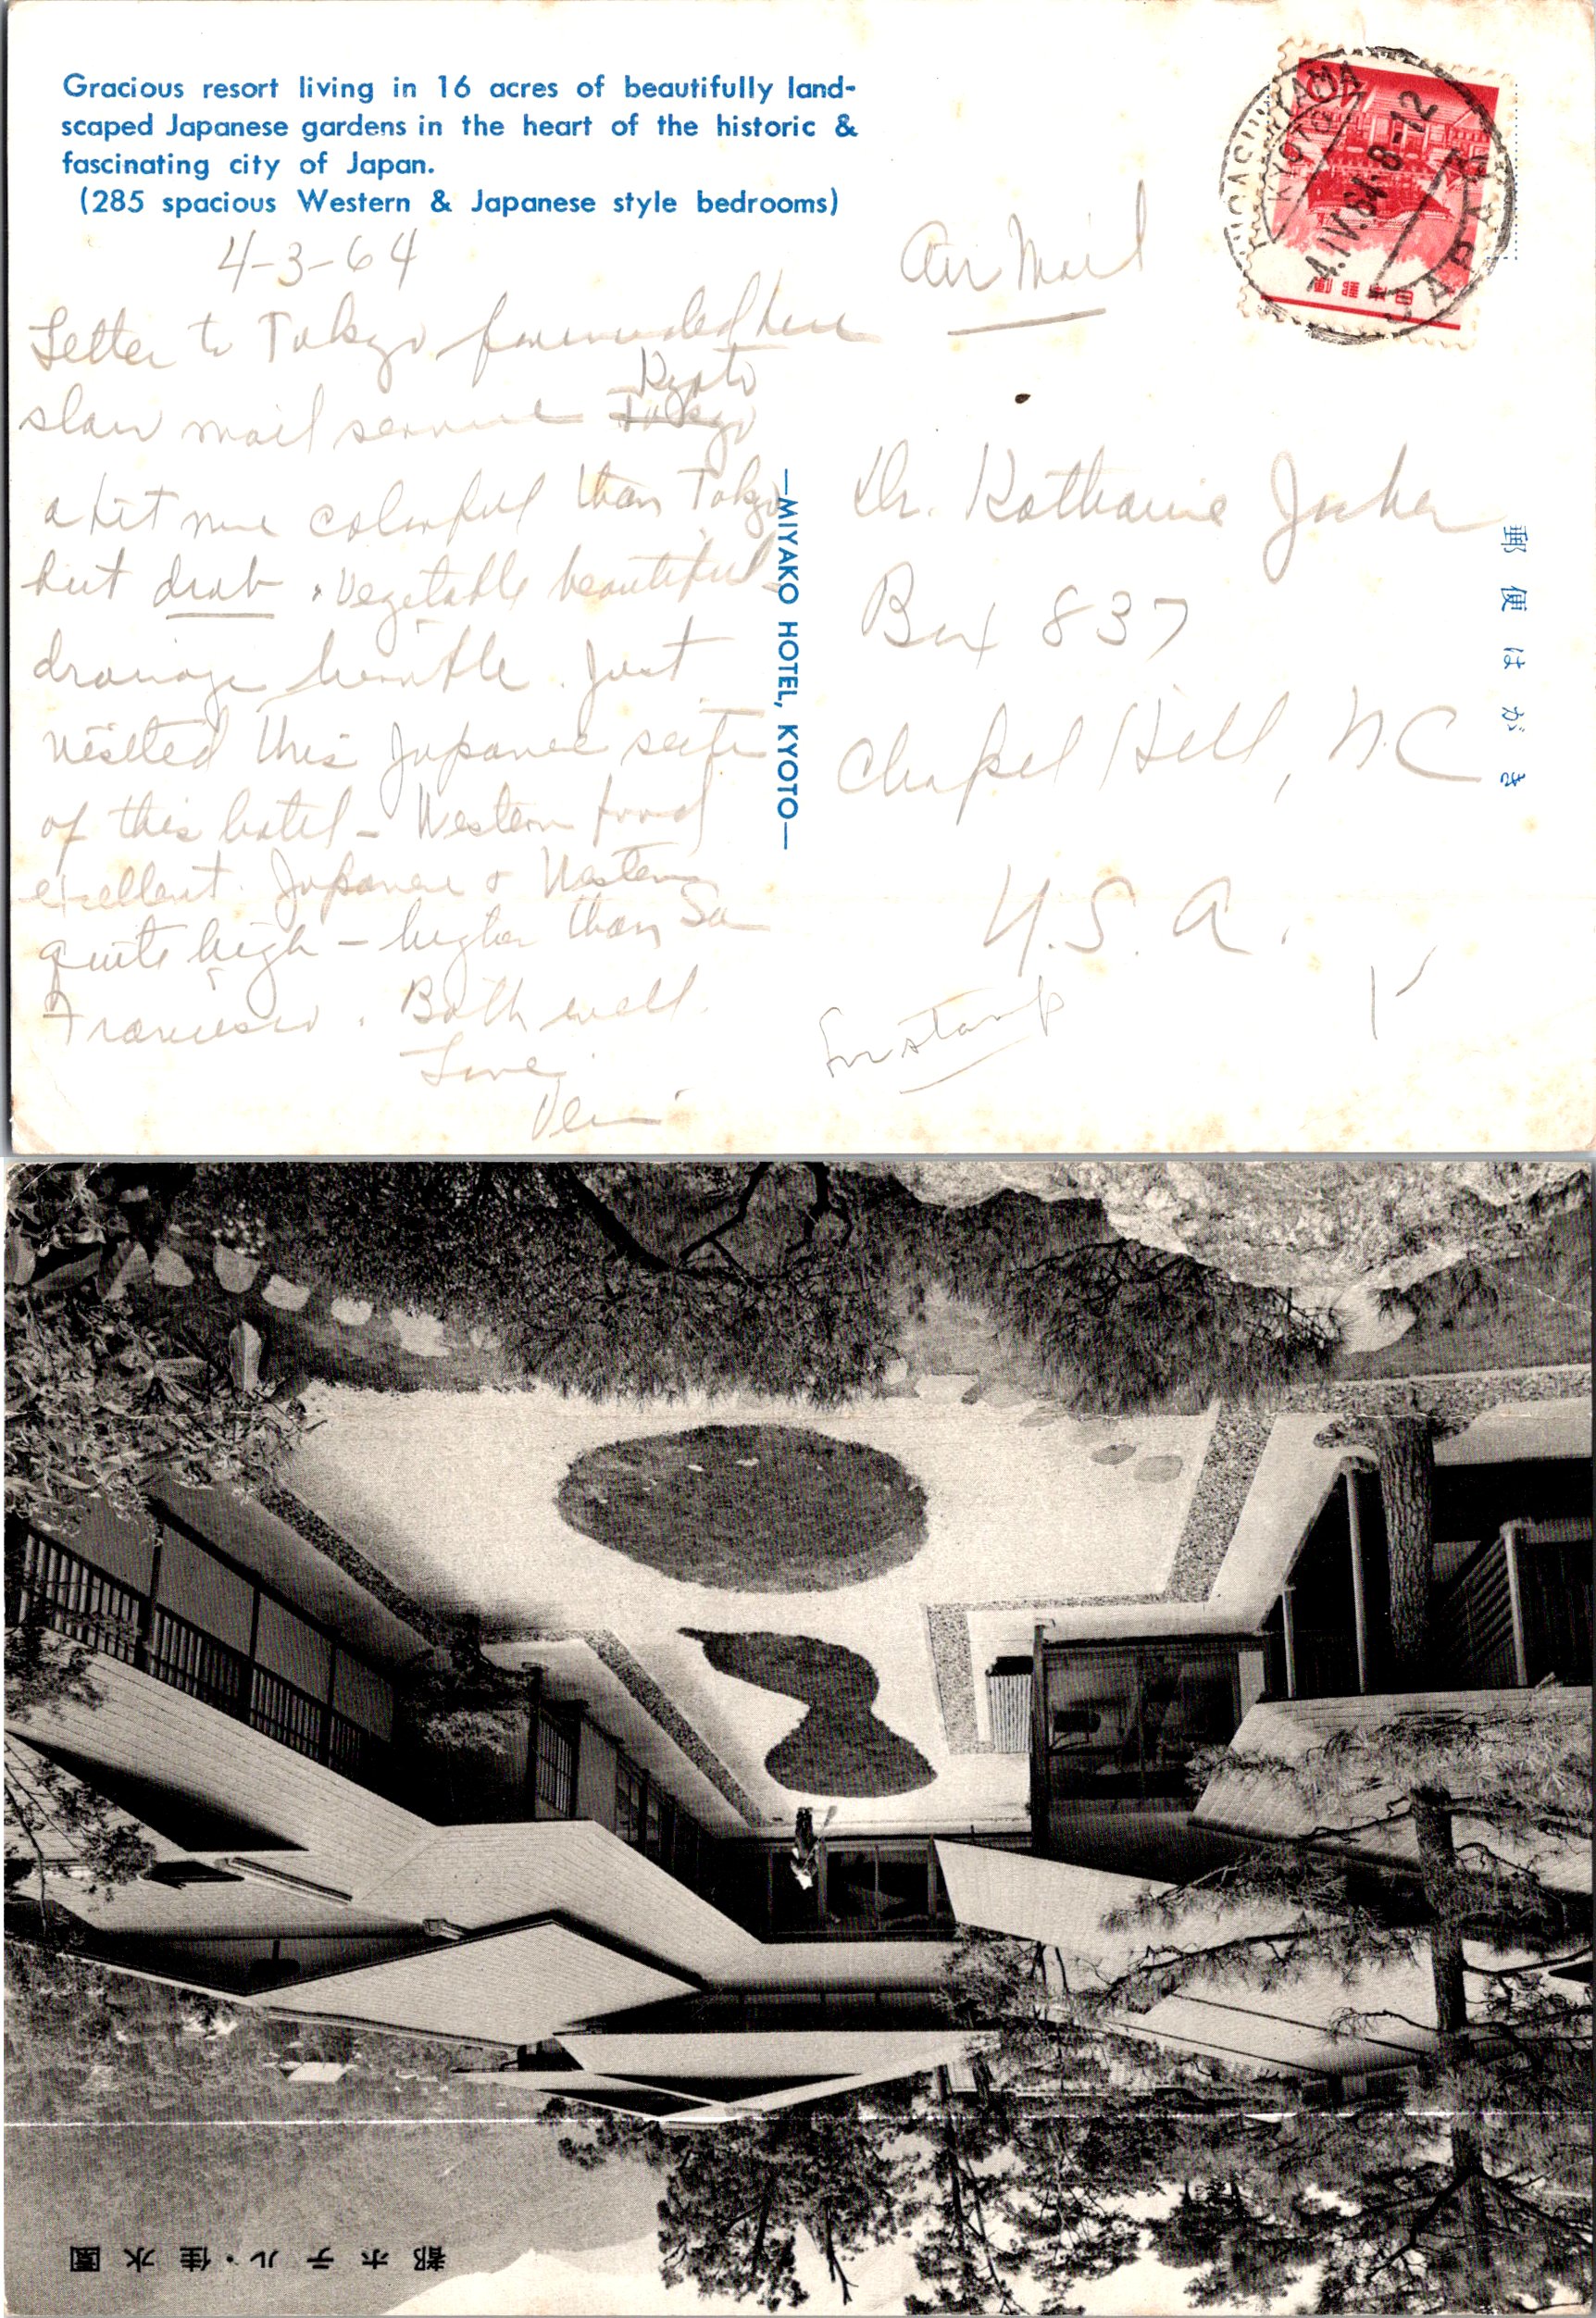 Gracious resort living in 16 acres of beautifully land-
scaped Japanese gardens in the heart of the historic &
fascinating city of Japan.
(285 spacious Western & Japanese style bedrooms)
4-3-64
Letter to Tokyo forwarded here
slow mail service Kyoto
Tokyo
a bit more colorful than Tokyo
but drab. Vegetable beautiful,
drainage horrible. Just
visited this Japanese suite
of this hotel - Western food
excellent. Japanese & Western
quite high - higher than San
Francisco. Both well.
Love,
Air Mail
Dr. Katharine Jocher
Box 837
Chapel Hill, N.C
U.S.A.
for stamp
—MIYAKO HOTEL, KYOTO—
郵便はがき
HIGASHIYAMA
KYOTO
4.IV.64. 8-12
JAPAN
日本郵便
都ホテル・佳水園